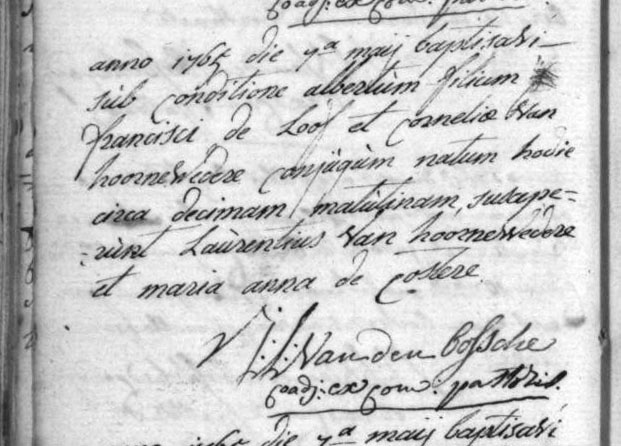 coadj: ex com. pastoris.
anno 1765 die 7ª maij baptisavi
sub conditione albertùm filium
francisci de Loof et corneliæ Van
hoornewédere conjúgùm natum hodie
circa decimam matùtinam, suscepe=
=rùnt Laùrentius Van hóórnewédere
et maria anna de costere
Van den bossche
coadj: ex com. pastoris.
anno 1765 die 7ª maij baptisavi